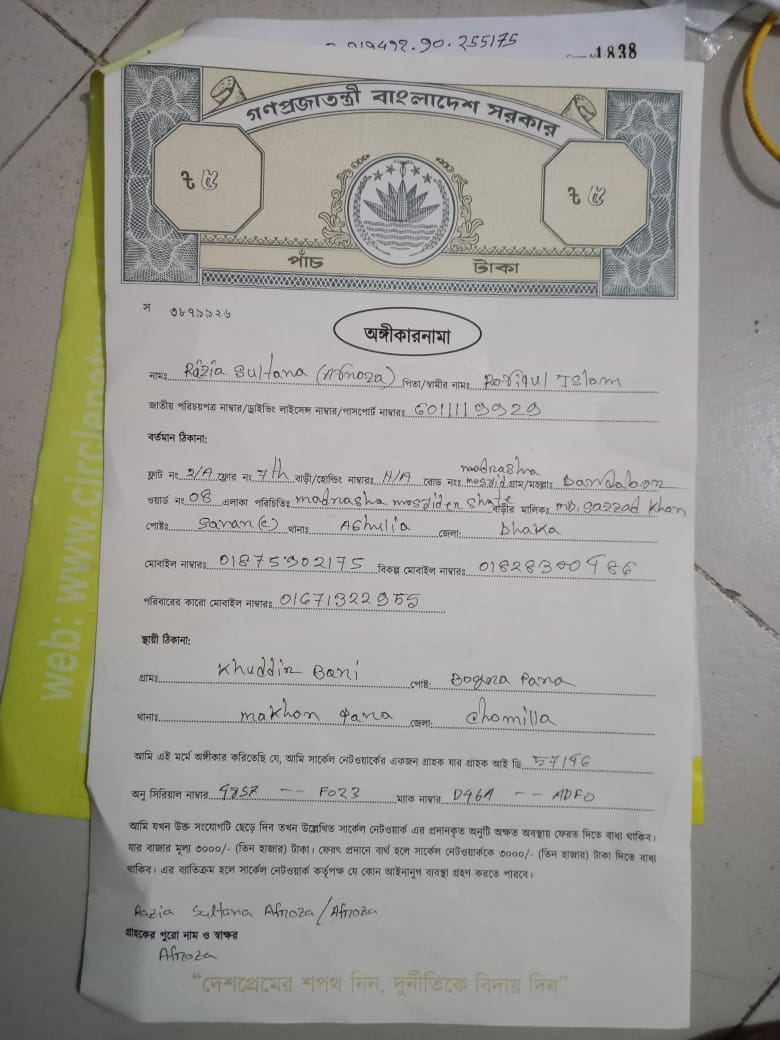 019492.90.255175
1838
গণপ্রজাতন্ত্রী বাংলাদেশ সরকার
৳ ৫
৳ ৫
পাঁচ টাকা
স ৩৮৭৯৯২৬
অঙ্গীকারনামা
নামঃ Razia Sultana (Afroza) পিতা/স্বামীর নামঃ Rofiqul Islam
জাতীয় পরিচয়পত্র নাম্বার/ড্রাইভিং লাইসেন্স নাম্বার/পাসপোর্ট নাম্বারঃ 6011119929
বর্তমান ঠিকানা:
ফ্লাট নং 2/A ফ্লোর নং 7th বাড়ী/হোল্ডিং নাম্বারঃ H/A রোড নংঃ madrasha mosjid গ্রাম/মহল্লাঃ
ওয়ার্ড নং 08 এলাকা পরিচিতিঃ madrasha বাড়ীর মালিকঃ MD. Sazzad Khan
পোষ্টঃ থানাঃ Ashulia জেলা: Dhaka
মোবাইল নাম্বারঃ 01875902175 বিকল্প মোবাইল নাম্বারঃ
পরিবারের কারো মোবাইল নাম্বারঃ 01671322955
স্থায়ী ঠিকানা:
গ্রামঃ Khuddin Bari পোষ্ট:
থানাঃ জেলা: Chomilla
আমি এই মর্মে অঙ্গীকার করিতেছি যে, আমি সার্কেল নেটওয়ার্কের একজন গ্রাহক যার গ্রাহক আই ডি 57196
অনু সিরিয়াল নাম্বার -- F023 ম্যাক নাম্বার D46A -- ADF0
আমি যখন উক্ত সংযোগটি ছেড়ে দিব তখন উল্লেখিত সার্কেল নেটওয়ার্ক এর প্রদানকৃত অনুটি অক্ষত অবস্থায় ফেরত দিতে বাধ্য থাকিব।
যার বাজার মূল্য ৩০০০/- (তিন হাজার) টাকা। ফেরৎ প্রদানে ব্যর্থ হলে সার্কেল নেটওয়ার্ককে ৩০০০/- (তিন হাজার) টাকা দিতে বাধ্য
থাকিব। এর ব্যতিক্রম হলে সার্কেল নেটওয়ার্ক কর্তৃপক্ষ যে কোন আইনানুগ ব্যবস্থা গ্রহণ করতে পারবে।
Razia Sultana Afroza/Afroza
গ্রাহকের পুরো নাম ও স্বাক্ষর
Afroza
"দেশপ্রেমের শপথ নিন, দুর্নীতিকে বিদায় দিন"
web: www.circlenet